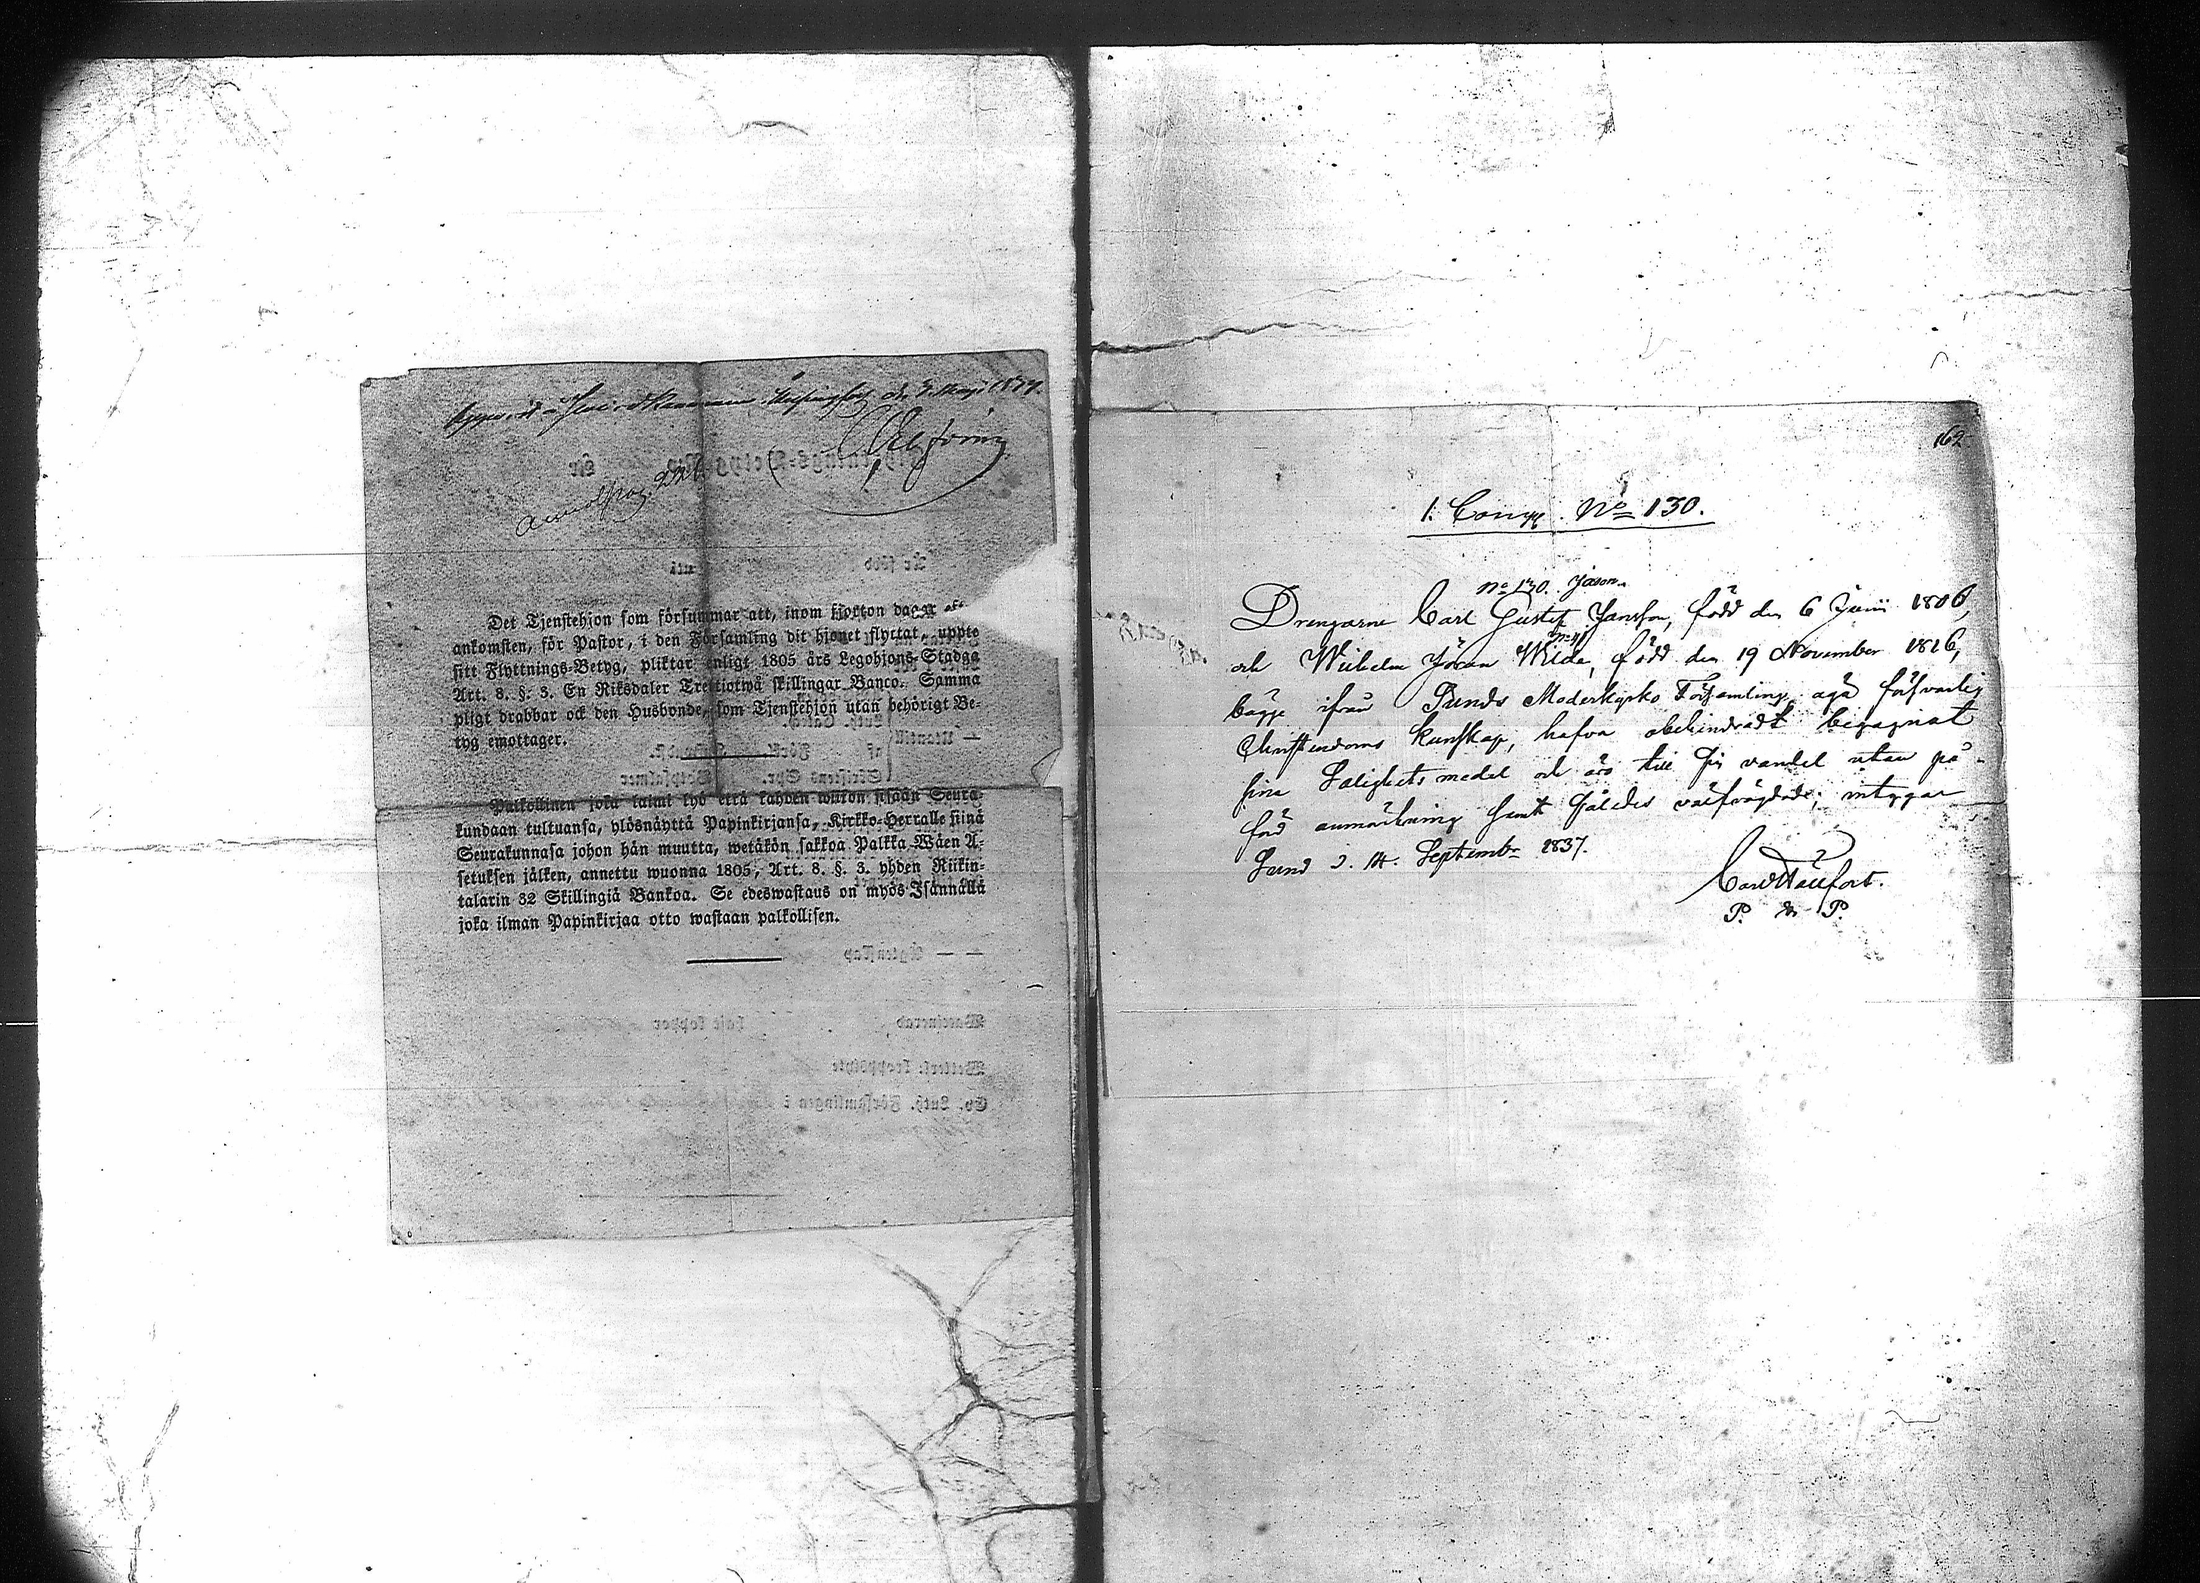 den 3. Maji 18
Det Tjenstehjon som försummar att, inom fjorton dagar
ankomsten, för Pastor, i den Församling dit hjonet flyttat, uppte
sitt Flyttnings-Betyg, pliktar enligt 1805 års Legohjons-Stadga
Art. 8. §. 3. En Riksdaler Trettiotwå skillingar Banco. Samma
pligt drabbar ock den Husbonde, som Tjenstehjon utan behörigt Be-
tyg emottager.
Palkollinen joka laimi lyö että kahden wiikon sisään Seura-
kundaan tultuansa, ylösnäyttä Papinkirjansa, Kirkko-Herralle siinä
Seurakunnasa johon hän muutta, wetäkön sakkoa Palkka-Wäen A-
setuksen jälken, annettu wuonna 1805, Art. 8. §. 3. yhden Riikin-
talarin 32 Skillingiä Bankoa. Se edeswastaus on myös Isännällä
joka ilman Papinkirjaa otto wastaan palkollisen.
162
1. Comp. No 130.
No 130. Jason
Drengarne Carl Gustef Jansson, född den 6 Junii 1806,
och Wilhelm Jöran Wilde, född den 19 November 1816,
bägge ifrån Sunds Moderkyrko Församling äga försvarlig
Christendoms kunskap, hafva obehindradt begagnat
sina Salighetsmedel och äro till sin vandel utan på-
förd anmärkning samt således välfrägdade; intygar
Sund d. 14. Septembr 1837.
P. & P.